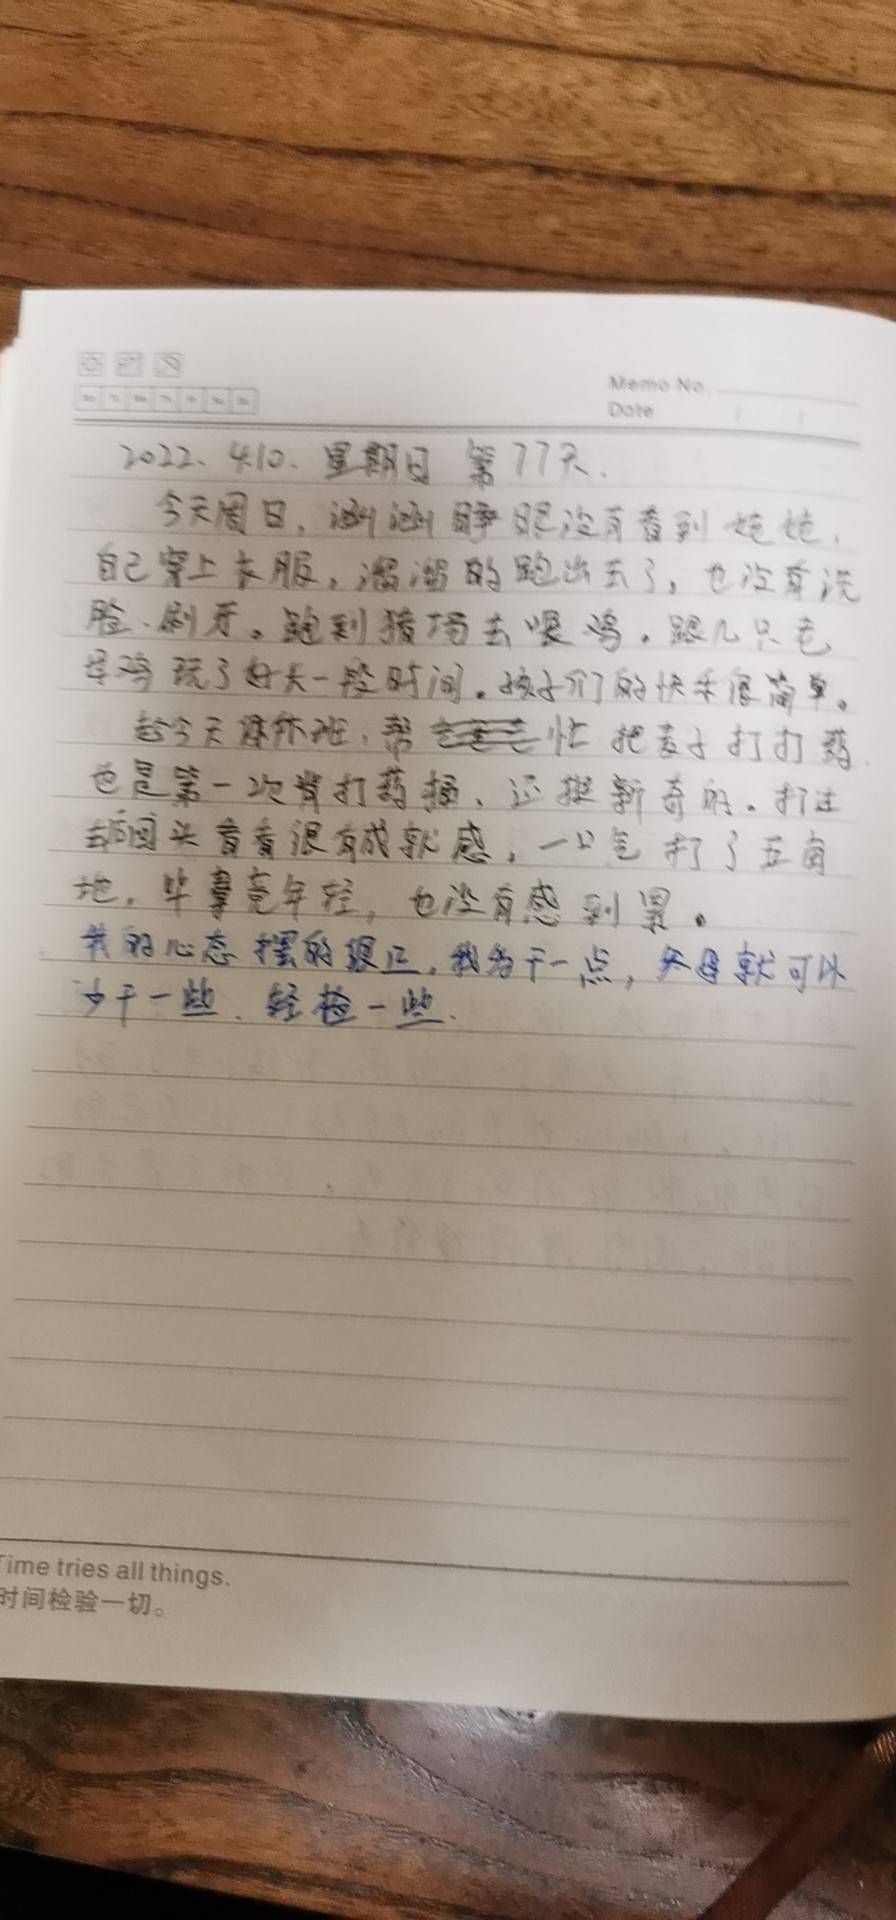 Memo No.
Date
2022. 4.10. 星期日 第77天.
今天周日，涵涵睁眼没有看到姥姥，
自己穿上衣服，溜溜的跑出去了，也没有洗
脸、刷牙。跑到猪场去喂鸡。跟几只老
母鸡玩了好长一段时间。孩子们的快乐很简单。
趁今天休班，帮忙把麦子打打药.
也是第一次背打药桶、还挺新奇的。打过
去后回头看看很有成就感，一口气打了五亩
地，毕竟年轻，也没有感到累。
我的心态摆的很正，我多干一点，父母就可以
少干一些、轻松一些.
Time tries all things.
时间检验一切。